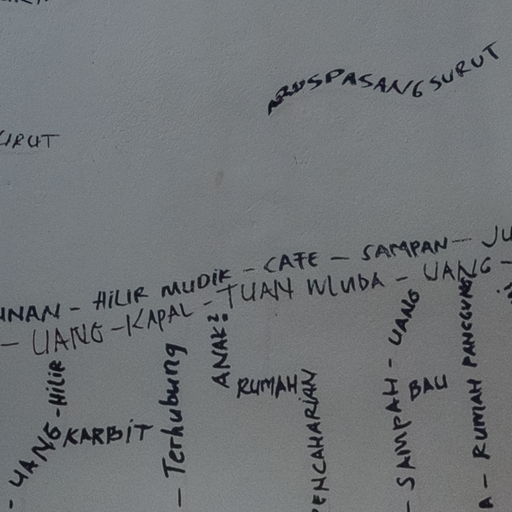 ARUSPASANGSURUT
URUT
UNAN - HILIR MUDIK - CAFE - SAMPAN - JU
- UANG - KAPAL - TUAN MUDA - UANG -
- UANG - HILIR
KARBIT
- Terhubung
ANAK2
RUMAH
ENCAHARIAN
- SAMPAH - UANG
BAU
A - RUMAH PANGGUNG